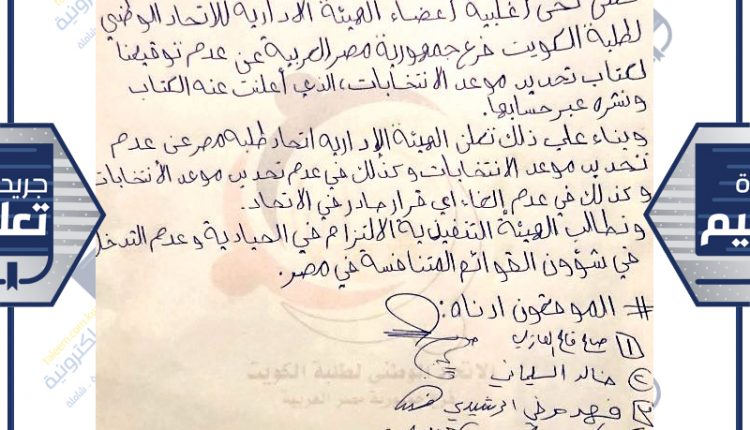 نحن أغلبية أعضاء الهيئة الإدارية للاتحاد الوطني
لطلبة الكويت فرع جمهورية مصر العربية عن عدم توقيعنا
لكتاب تحديد موعد الانتخابات، الذي أعلنت عنه الكتاب
ونشره عبر حسابها.
وبناء على ذلك تعلن الهيئة الإدارية اتحاد طلبه مصر عن عدم
تحديد موعد الانتخابات وكذلك في عدم تحديد موعد الأنتخابات
وكذلك في عدم إلغاء اي قرار صادر في الاتحاد.
ونطالب الهيئة التنفيذية الالتزام في الحيادية وعدم التدخل
في شؤون القوائم المتنافسة في مصر.
# الموقعون ادناه:
١) فالح العازب
٢) خالد السليماني
٣) فهد مرضي الرشيدي
الاتحاد الوطني لطلبة الكويت
فرع جمهورية مصر العربية
جريدة
تعليم